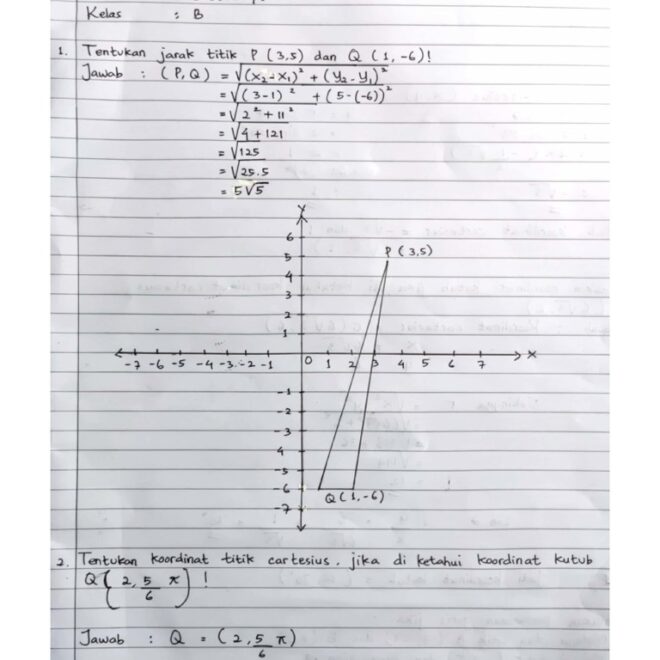 Kelas : B
1. Tentukan jarak titik P (3,5) dan Q (1,-6)!
Jawab : (P,Q) = √(x₂-x₁)² + (y₂-y₁)²
= √(3-1)² + (5-(-6))²
= √2² + 11²
= √4 + 121
= √125
= √25.5
= 5√5
Y
6
5 P (3,5)
4
3
2
1
-7 -6 -5 -4 -3 -2 -1 0 1 2 3 4 5 6 7 X
-1
-2
-3
-4
-5
-6 Q (1,-6)
-7
2. Tentukan koordinat titik cartesius, jika di ketahui koordinat kutub
Q (2, 5/6 π) !
Jawab : Q = (2, 5/6 π)